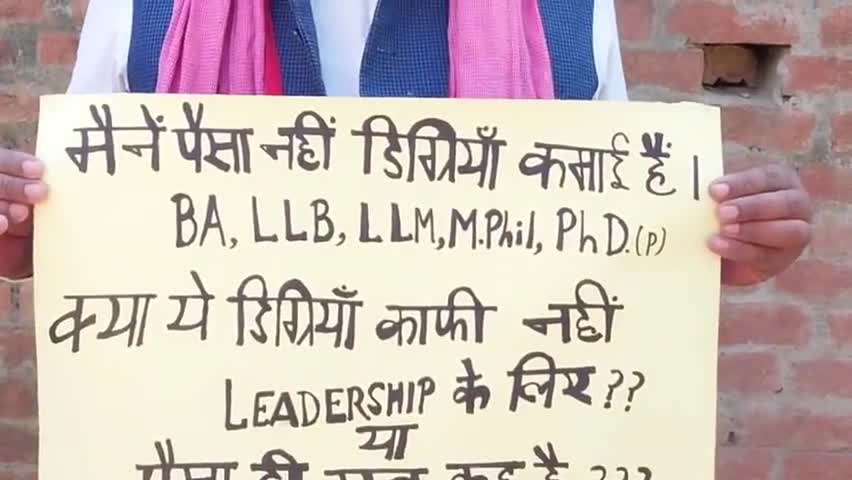 मैनें पैसा नहीं डिग्रियाँ कमाई हैं।
BA, LLB, LLM, M.Phil, PhD.(P)
क्या ये डिग्रियाँ काफी नहीं
LEADERSHIP के लिए??
या
पैसा ही सब कुछ है???